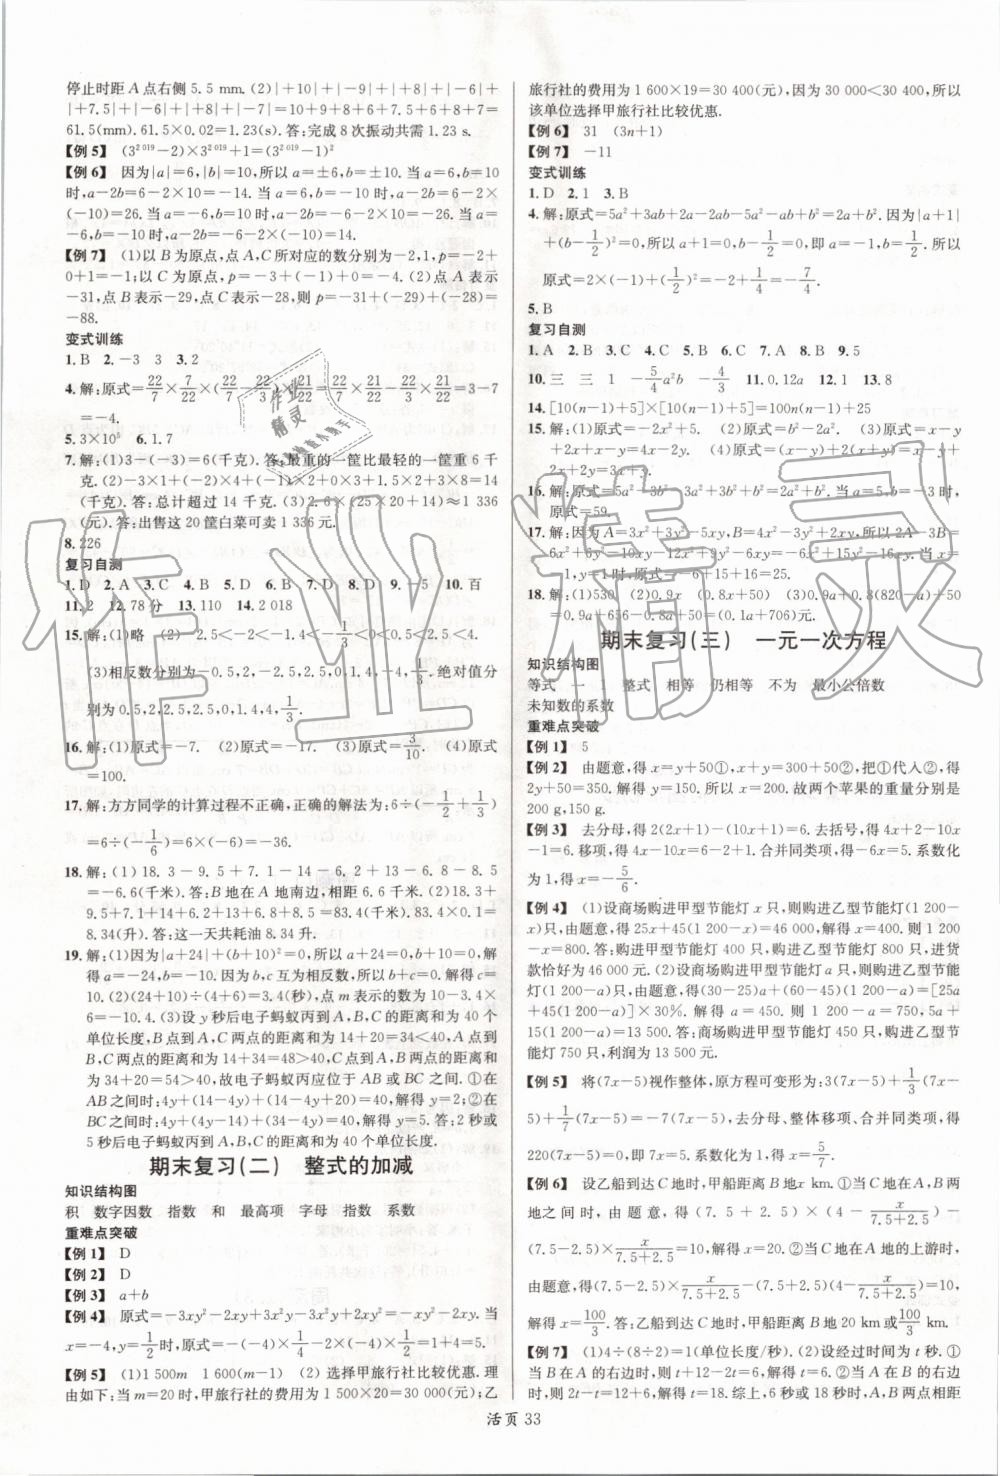 停止时距 A 点右侧 5.5 mm. (2)|+10|+|-9|+|+8|+|-6|+
|+7.5|+|-6|+|+8|+|-7|=10+9+8+6+7.5+6+8+7=
61.5(mm). 61.5×0.02=1.23(s). 答:完成 8 次振动共需 1.23 s.
【例 5】 (3^2 019-2)×3^2 019+1=(3^2 019-1)^2
【例 6】 因为|a|=6,|b|=10,所以 a=±6,b=±10. 当 a=6,b=10
时,a-2b=6-2×10=-14. 当 a=6,b=-10 时,a-2b=6-2×
(-10)=26. 当 a=-6,b=10 时,a-2b=-6-2×10=-26. 当 a=
-6,b=-10 时,a-2b=-6-2×(-10)=14.
【例 7】 (1)以 B 为原点,点 A,C 所对应的数分别为-2,1,p=-2+
0+1=-1;以 C 为原点,p=-3+(-1)+0=-4. (2)点 A 表示
-31,点 B 表示-29,点 C 表示-28,则 p=-31+(-29)+(-28)=
-88.
变式训练
1. B 2. -3 3 3. 2
4. 解:原式=22/7×7/22+22/7×(-22/3)×21/22
=-4.
5. 3×10^5 6. 1.7
7. 解:(1)3-(-3)=6(千克). 答:最重的一筐比最轻的一筐重 6 千
(千克). 答:总计超过 14 千克. (3)2.6×(25×20+14)≈1 336
(元). 答:出售这 20 筐白菜可卖 1 336 元.
8. 226
复习自测
1. D 2. A 3. C 4. B 5. D 6. B 7. B 8. D 9. -5 10. 百
11. 2 12. 78 分 13. 110 14. 2 018
15. 解:(1)略 (2)-2.5<-2<-0.5<-1/3<0<0.5<2.5<4.
(3)相反数分别为-0.5,2,-2.5,2.5,0,-4,1/3,0.5. 绝对值分
别为 0.5,2,2.5,2.5,0,4,1/3,0.5.
16. 解:(1)原式=-7. (2)原式=-7. (3)原式=3/10. (4)原式
=100.
17. 解:方方同学的计算过程不正确,正确的解法为:6÷(-1/2+1/3)
=6÷(-1/6)=6×(-6)=-36.
18. 解:(1) 18.3-9.5+7.1-14+6.2+13-6.8-8.5
=-6.6(千米). 答:B 地在 A 地南边,相距 6.6 千米. (2)18.3+
9.5+7.1+14+6.2+13+6.8+8.5=83.4(千米). 83.4×0.1=
8.34(升). 答:这一天共耗油 8.34 升.
19. 解:(1)因为|a+24|+(b+10)^2=0,所以 a+24=0,b+10=0,解
得 a=-24,b=-10. 因为 b,c 互为相反数,所以 b+c=0,解得 c=
10. (2)(24+10)÷(4+6)=3.4(秒),点 m 表示的数为 10-3.4×
6=-10.4. (3)设 y 秒后电子蚂蚁丙到 A,B,C 的距离和为 40 个
单位长度,B 点到 A,C 两点的距离和为 14+20=34<40,A 点到
B,C 两点的距离和为 14+34=48>40,C 点到 A,B 两点的距离和
为 34+20=54>40,故电子蚂蚁丙应位于 AB 或 BC 之间. ①在
AB 之间时:4y+(14-4y)+(14-4y+20)=40,解得 y=2;②在
BC 之间时:4y+(4y-14)+(34-4y)=40,解得 y=5. 答:2 秒或
5 秒后电子蚂蚁丙到 A,B,C 的距离和为 40 个单位长度.
期末复习(二) 整式的加减
知识结构图
积 数字因数 指数 和 最高项 字母 指数 系数
重难点突破
【例 1】 D
【例 2】 D
【例 3】 a+b
【例 4】 原式=-3xy^2-2xy+3x^2y-3x^2y+2xy^2=-xy^2-2xy. 当
x=-4,y=1/2时,原式=-(-4)×1/4-2×(-4)×1/2=1+4=5.
【例 5】 (1)1 500m 1 600(m-1) (2) 选择甲旅行社比较优惠. 理
由如下:当 m=20 时,甲旅行社的费用为 1 500×20=30 000(元);乙
旅行社的费用为 1 600×19=30 400(元),因为 30 000<30 400,所以
该单位选择甲旅行社比较优惠.
【例 6】 31 (3n+1)
【例 7】 -11
变式训练
1. D 2. 1 3. B
4. 解:原式=5a^2+3ab+2a-2ab-5a^2-ab+b^2=2a+b^2. 因为|a+1|
+(b-1/2)^2=0,所以 a+1=0,b-1/2=0,即 a=-1,b=1/2,所以
原式=2×(-1)+(1/2)^2=-2+1/4=-7/4.
5. B
复习自测
1. A 2. B 3. C 4. C 5. B 6. C 7. A 8. B 9. 5
10. 三 三 1 -5/4a^2b -4/3 11. 0.12a 12. 1 13. 8
14. [10(n-1)+5]×[10n+5]=100n(n-1)+25
15. 解:(1)原式=-2x^2+5. (2)原式=b^2-2a^2. (3)原式=x-y
+2x-y+x-y=4x-2y. (4)原式=(x-y)+2(x+y)=x-y+
2x+2y=3x+y.
16. 解:原式=5a^2+3b^2-3b^2-3a^2+2a^2+b^2=2a^2+b^2. 当 a=5,b=-3 时,
原式=59.
x=1,y=1 时,原式=-6+15-16=-7.
18. 解:(1)530 (2)0.9x (0.8x+60) (3)0.9a+0.8(820-a)+50
=0.9a+656-0.8a+50=(0.1a+706)元.
期末复习(三) 一元一次方程
知识结构图
等式 一 1 整式 相等 仍相等 不为 最小公倍数
未知数的系数
重难点突破
【例 1】 5
【例 2】 由题意,得 x=y+50①,x+y=300+50②,把①代入②,得
2y+50=350. 解得 y=150. 所以 x=200. 故两个苹果的重量分别是
200 g,150 g.
【例 3】 去分母,得 2(2x+1)-(10x+1)=6. 去括号,得 4x+2-10x
-1=6. 移项,得 4x-10x=6-2+1. 合并同类项,得-6x=5. 系数化
为 1,得 x=-5/6.
【例 4】 (1)设商场购进甲型节能灯 x 只,则购进乙型节能灯(1 200-
x)只,由题意,得 25x+45(1 200-x)=46 000,解得 x=400. 则 1 200
-x=800. 答:购进甲型节能灯 400 只,购进乙型节能灯 800 只,进货
款恰好为 46 000 元. (2)设商场购进甲型节能灯 a 只,则购进乙型节
能灯(1 200-a)只,由题意,得(30-25)a+(60-45)(1 200-a)=[25a
+45(1 200-a)]×30%. 解得 a=450. 则 1 200-a=750,5a+
15(1 200-a)=13 500. 答:商场购进甲型节能灯 450 只,购进乙型节
能灯 750 只,利润为 13 500 元.
【例 5】 将(7x-5)视作整体,原方程可变形为:3(7x-5)+1/3(7x-
5)+1/7(7x-5)=-(7x-5),去分母、整体移项、合并同类项,得
220(7x-5)=0. 即 7x-5=0. 解得 x=5/7.
【例 6】 设乙船到达 C 地时,甲船距离 B 地 x km. ①当 C 地在 A,B 两
地之间时,由题意,得 (7.5+2.5)×(4-x/(7.5+2.5))-
(7.5-2.5)×x/(7.5+2.5)=10. 解得 x=20. ②当 C 地在 A 地的上游时,
由题意,得(7.5-2.5)×x/(7.5+2.5)-(7.5+2.5)(4-x/(7.5+2.5))=10,
解得 x=100/3. 答:乙船到达 C 地时,甲船距离 B 地 20 km或100/3km.
【例 7】 (1)4÷(8÷2)=1(单位长度/秒). (2)设经过时间为 t 秒. ①
当 B 在 A 的右边时,则 t+12-2t=6,解得 t=6;②当 A 在 B 的右边
时,则 2t-12-t=6,解得 t=18. 综上,6 秒或 18 秒时,A,B 两点相距
活页 33
作业精灵